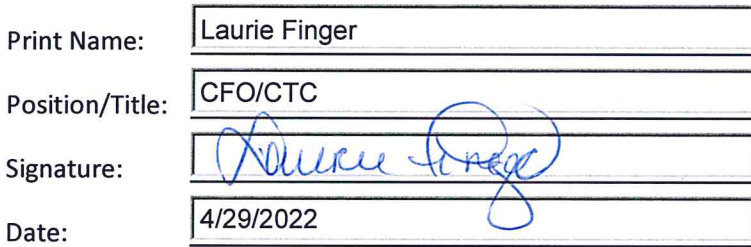 Print Name: Laurie Finger
Position/Title: CFO/CTC
Signature: Laurie Finger
Date: 4/29/2022